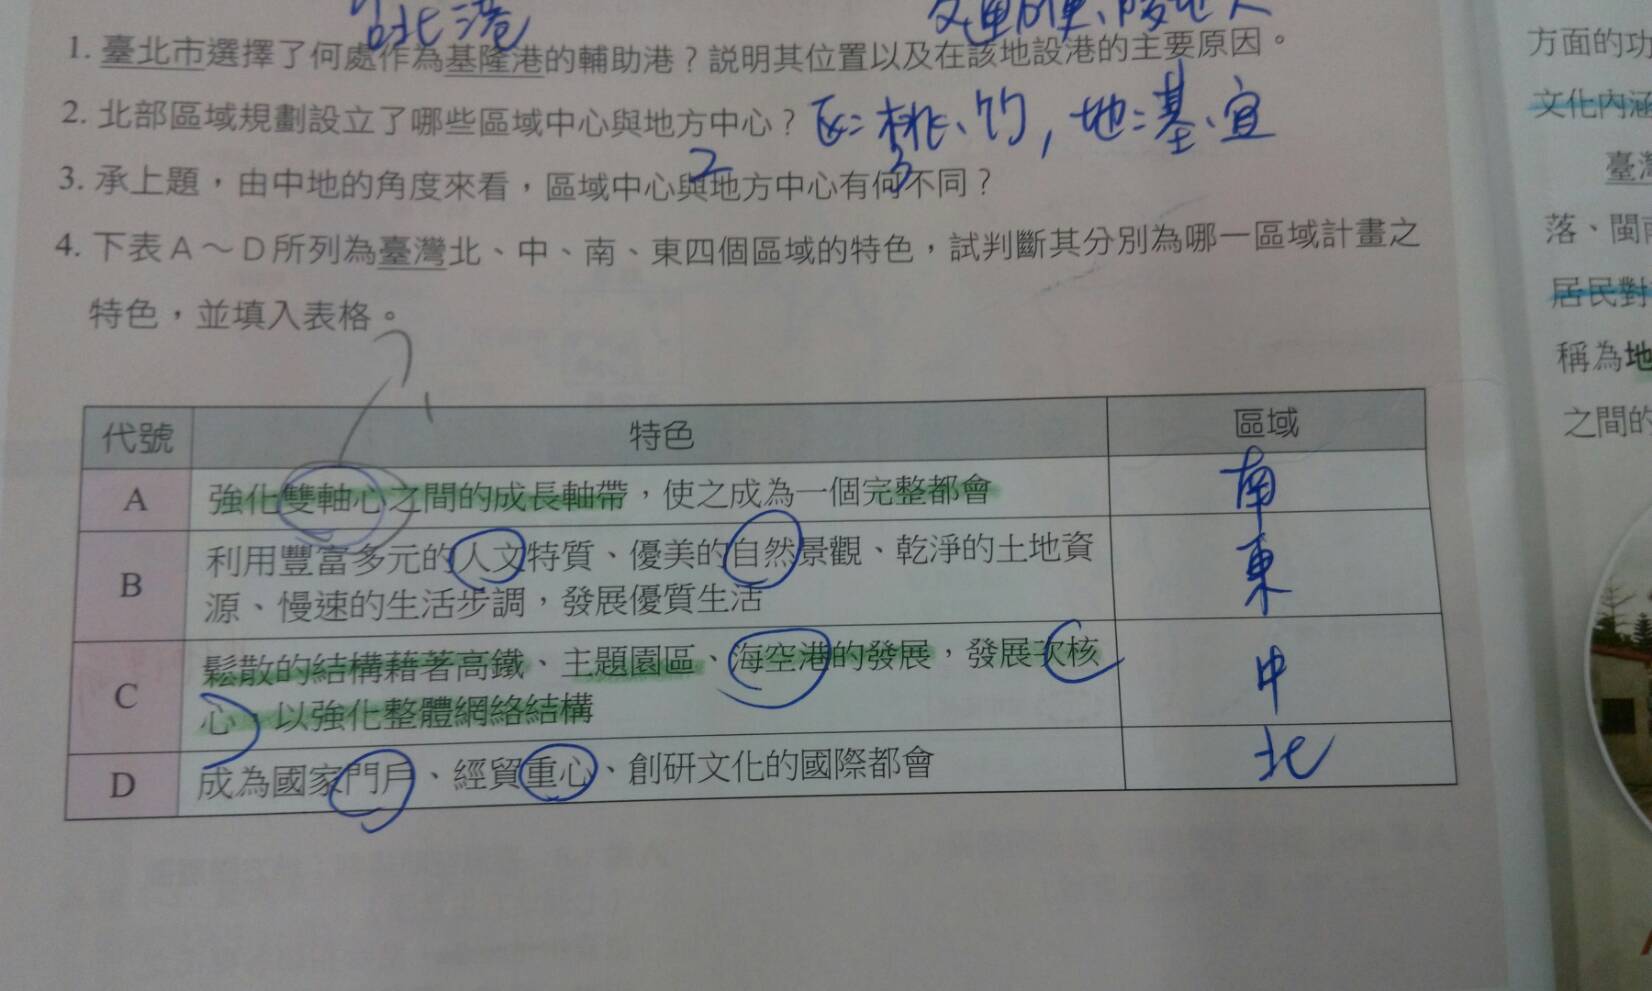 台北港
1. 臺北市選擇了何處作為基隆港的輔助港？說明其位置以及在該地設港的主要原因。
2. 北部區域規劃設立了哪些區域中心與地方中心？ 區：桃、竹，地：基、宜
2 3
3. 承上題，由中地的角度來看，區域中心與地方中心有何不同？
4. 下表A～D所列為臺灣北、中、南、東四個區域的特色，試判斷其分別為哪一區域計畫之
特色，並填入表格。
代號 特色 區域
A 強化雙軸心之間的成長軸帶，使之成為一個完整都會 南
B 利用豐富多元的人文特質、優美的自然景觀、乾淨的土地資
源、慢速的生活步調，發展優質生活 東
C 鬆散的結構藉著高鐵、主題園區、海空港的發展，發展次核
心，以強化整體網絡結構 中
D 成為國家門戶、經貿重心、創研文化的國際都會 北
方面的功
文化內涵
臺灣
落、閩南
居民對
稱為地
之間的